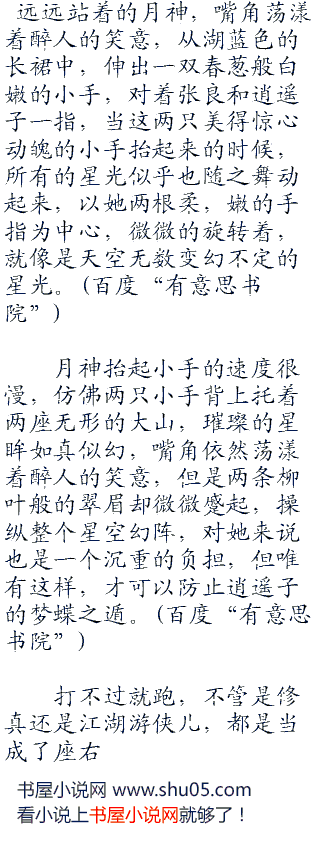 远远站着的月神，嘴角荡漾
着醉人的笑意，从湖蓝色的
长裙中，伸出一双春葱般白
嫩的小手，对着张良和逍遥
子一指，当这两只美得惊心
动魄的小手抬起来的时候，
所有的星光似乎也随之舞动
起来，以她两根柔，嫩的手
指为中心，微微的旋转着，
就像是天空无数变幻不定的
星光。(百度“有意思书
院”)
月神抬起小手的速度很
漫，仿佛两只小手背上托着
两座无形的大山，璀璨的星
眸如真似幻，嘴角依然荡漾
着醉人的笑意，但是两条柳
叶般的翠眉却微微蹙起，操
纵整个星空幻阵，对她来说
也是一个沉重的负担，但唯
有这样，才可以防止逍遥子
的梦蝶之遁。(百度“有意思
书院”)
打不过就跑，不管是修
真还是江湖游侠儿，都是当
成了座右
书屋小说网 www.shu05.com
看小说上书屋小说网就够了！